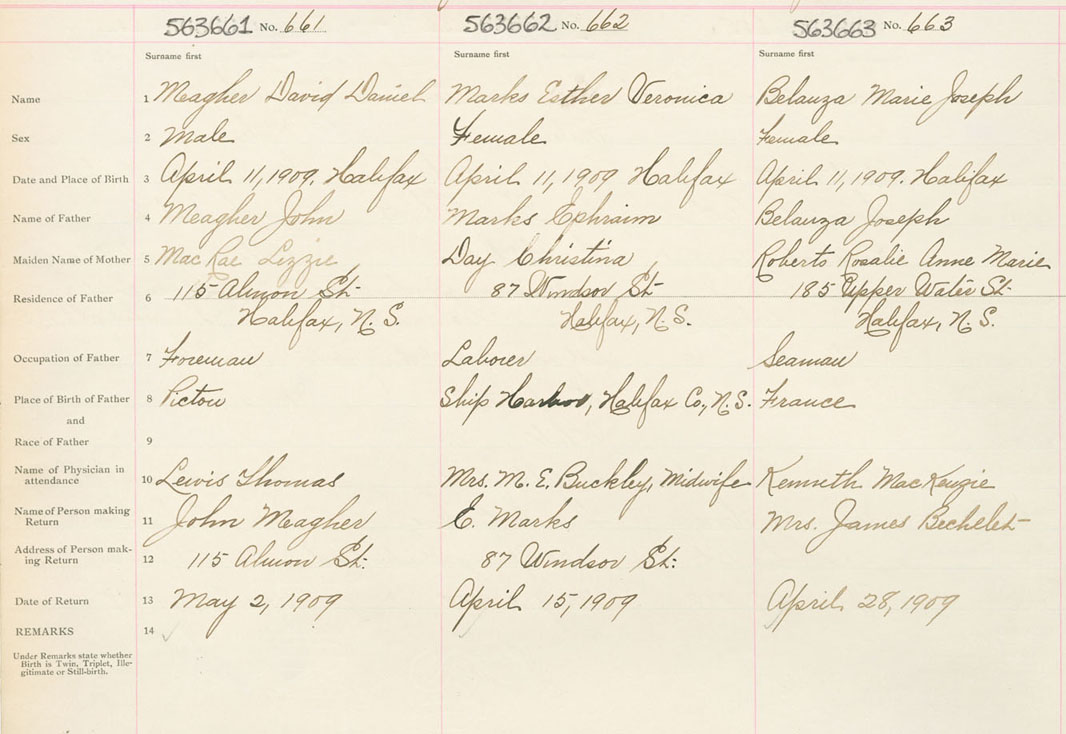 563661 No. 661 563662 No. 662 563663 No. 663
Surname first Surname first Surname first
Name 1 Meagher David Daniel Marks Esther Veronica Belauza Marie Joseph
Sex 2 Male Female Female
Date and Place of Birth 3 April 11, 1909. Halifax April 11, 1909 Halifax April 11, 1909. Halifax
Name of Father 4 Meagher John Marks Ephraim Belauza Joseph
Maiden Name of Mother 5 MacRae Lizzie Day Christina Roberts Rosalie Anne Marie
Residence of Father 6 115 Almon St. 87 Windsor St. 185 Upper Water St.
Halifax, N.S. Halifax, N.S. Halifax, N.S.
Occupation of Father 7 Foreman Laborer Seaman
Place of Birth of Father 8 Pictou Ship Harbor, Halifax Co., N.S. France
and
Race of Father 9
Name of Physician in
attendance 10 Lewis Thomas Mrs. M. E. Buckley, Midwife Kenneth MacKenzie
Name of Person making
Return 11 John Meagher E. Marks Mrs. James Bechelet
Address of Person mak-
ing Return 12 115 Almon St. 87 Windsor St.
Date of Return 13 May 2, 1909 April 15, 1909 April 28, 1909
REMARKS 14
Under Remarks state whether
Birth is Twin, Triplet, Ille-
gitimate or Still-birth.